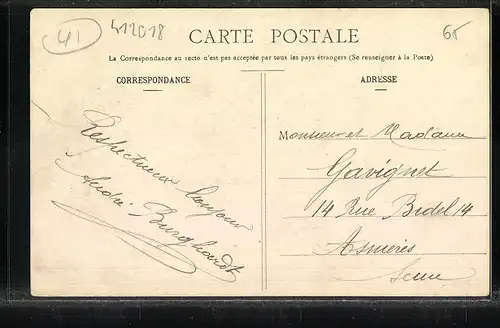 41
412018
65
CARTE POSTALE
La Correspondance au recto n'est pas acceptée par tous les pays étrangers (Se renseigner à la Poste)
CORRESPONDANCE
ADRESSE
Respectueux bonjour
André Burghardt
Monsieur et Madame
Gavignet
14 Rue Bidel 14
Asnieres
Seine